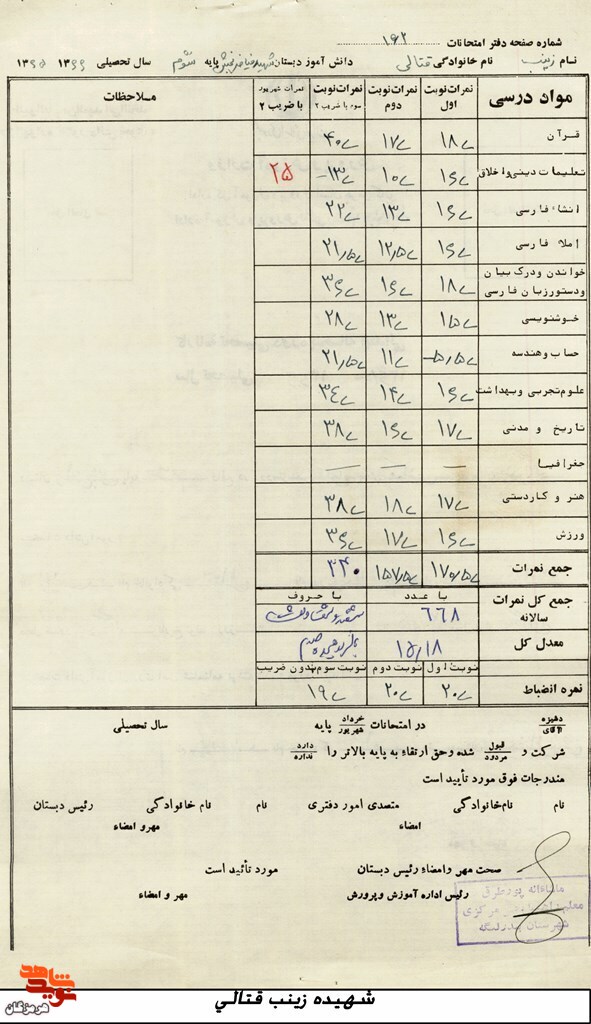 شماره صفحه دفتر امتحانات ۱۶۲
نام زینب نام خانوادگی قتالی دانش آموز دبستان شهید پایه سوم سال تحصیلی
مواد درسی نمرات نوبت اول نمرات نوبت دوم نمرات نوبت سوم با ضریب ۲ نمرات شهریور با ضریب ۲ ملاحظات
قرآن ۱۸ ۱۷ ۴۰
تعلیمات دینی و اخلاق ۱۶ ۱۰ ۱۳ ۲۵
انشاء فارسی ۱۶ ۱۳ ۲۲
املاء فارسی ۱۶ ۱۲/۵ ۲۱/۵
خواندن و درک بیان و دستور زبان فارسی ۱۸ ۱۶ ۳۶
خوشنویسی ۱۵ ۱۳ ۲۸
حساب و هندسه ۱۱ ۲۱/۵
علوم تجربی و بهداشت ۱۶ ۱۴ ۳۴
تاریخ و مدنی ۱۷ ۱۶ ۳۸
جغرافیا — — —
هنر و کاردستی ۱۷ ۱۸ ۳۸
ورزش ۱۶ ۱۷ ۳۶
جمع نمرات ۱۷۰/۵ ۱۵۷/۵ ۳۴۰
جمع کل نمرات سالانه با عدد ۶۶۸ با حروف ششصد و شصت و هشت
معدل کل ۱۵/۱۸ پانزده هیجده صدم
نوبت اول نوبت دوم نوبت سوم بدون ضریب
نمره انضباط ۲۰ ۲۰ ۱۹
دوشیزه آقای در امتحانات خرداد شهریور پایه سال تحصیلی
شرکت و قبول مردود شده و حق ارتقاء به پایه بالاتر را دارد ندارد
مندرجات فوق مورد تأیید است
نام نام خانوادگی متصدی امور دفتری نام نام خانوادگی رئیس دبستان
امضاء مهر و امضاء
صحت مهر و امضاء رئیس دبستان مورد تأئید است
رئیس اداره آموزش و پرورش مهر و امضاء
ماشاءاله پورطرق
مرکزی
شهرستان بندرلنگه
نوید شاهد
هرمزگان
شهیده زینب قتالي